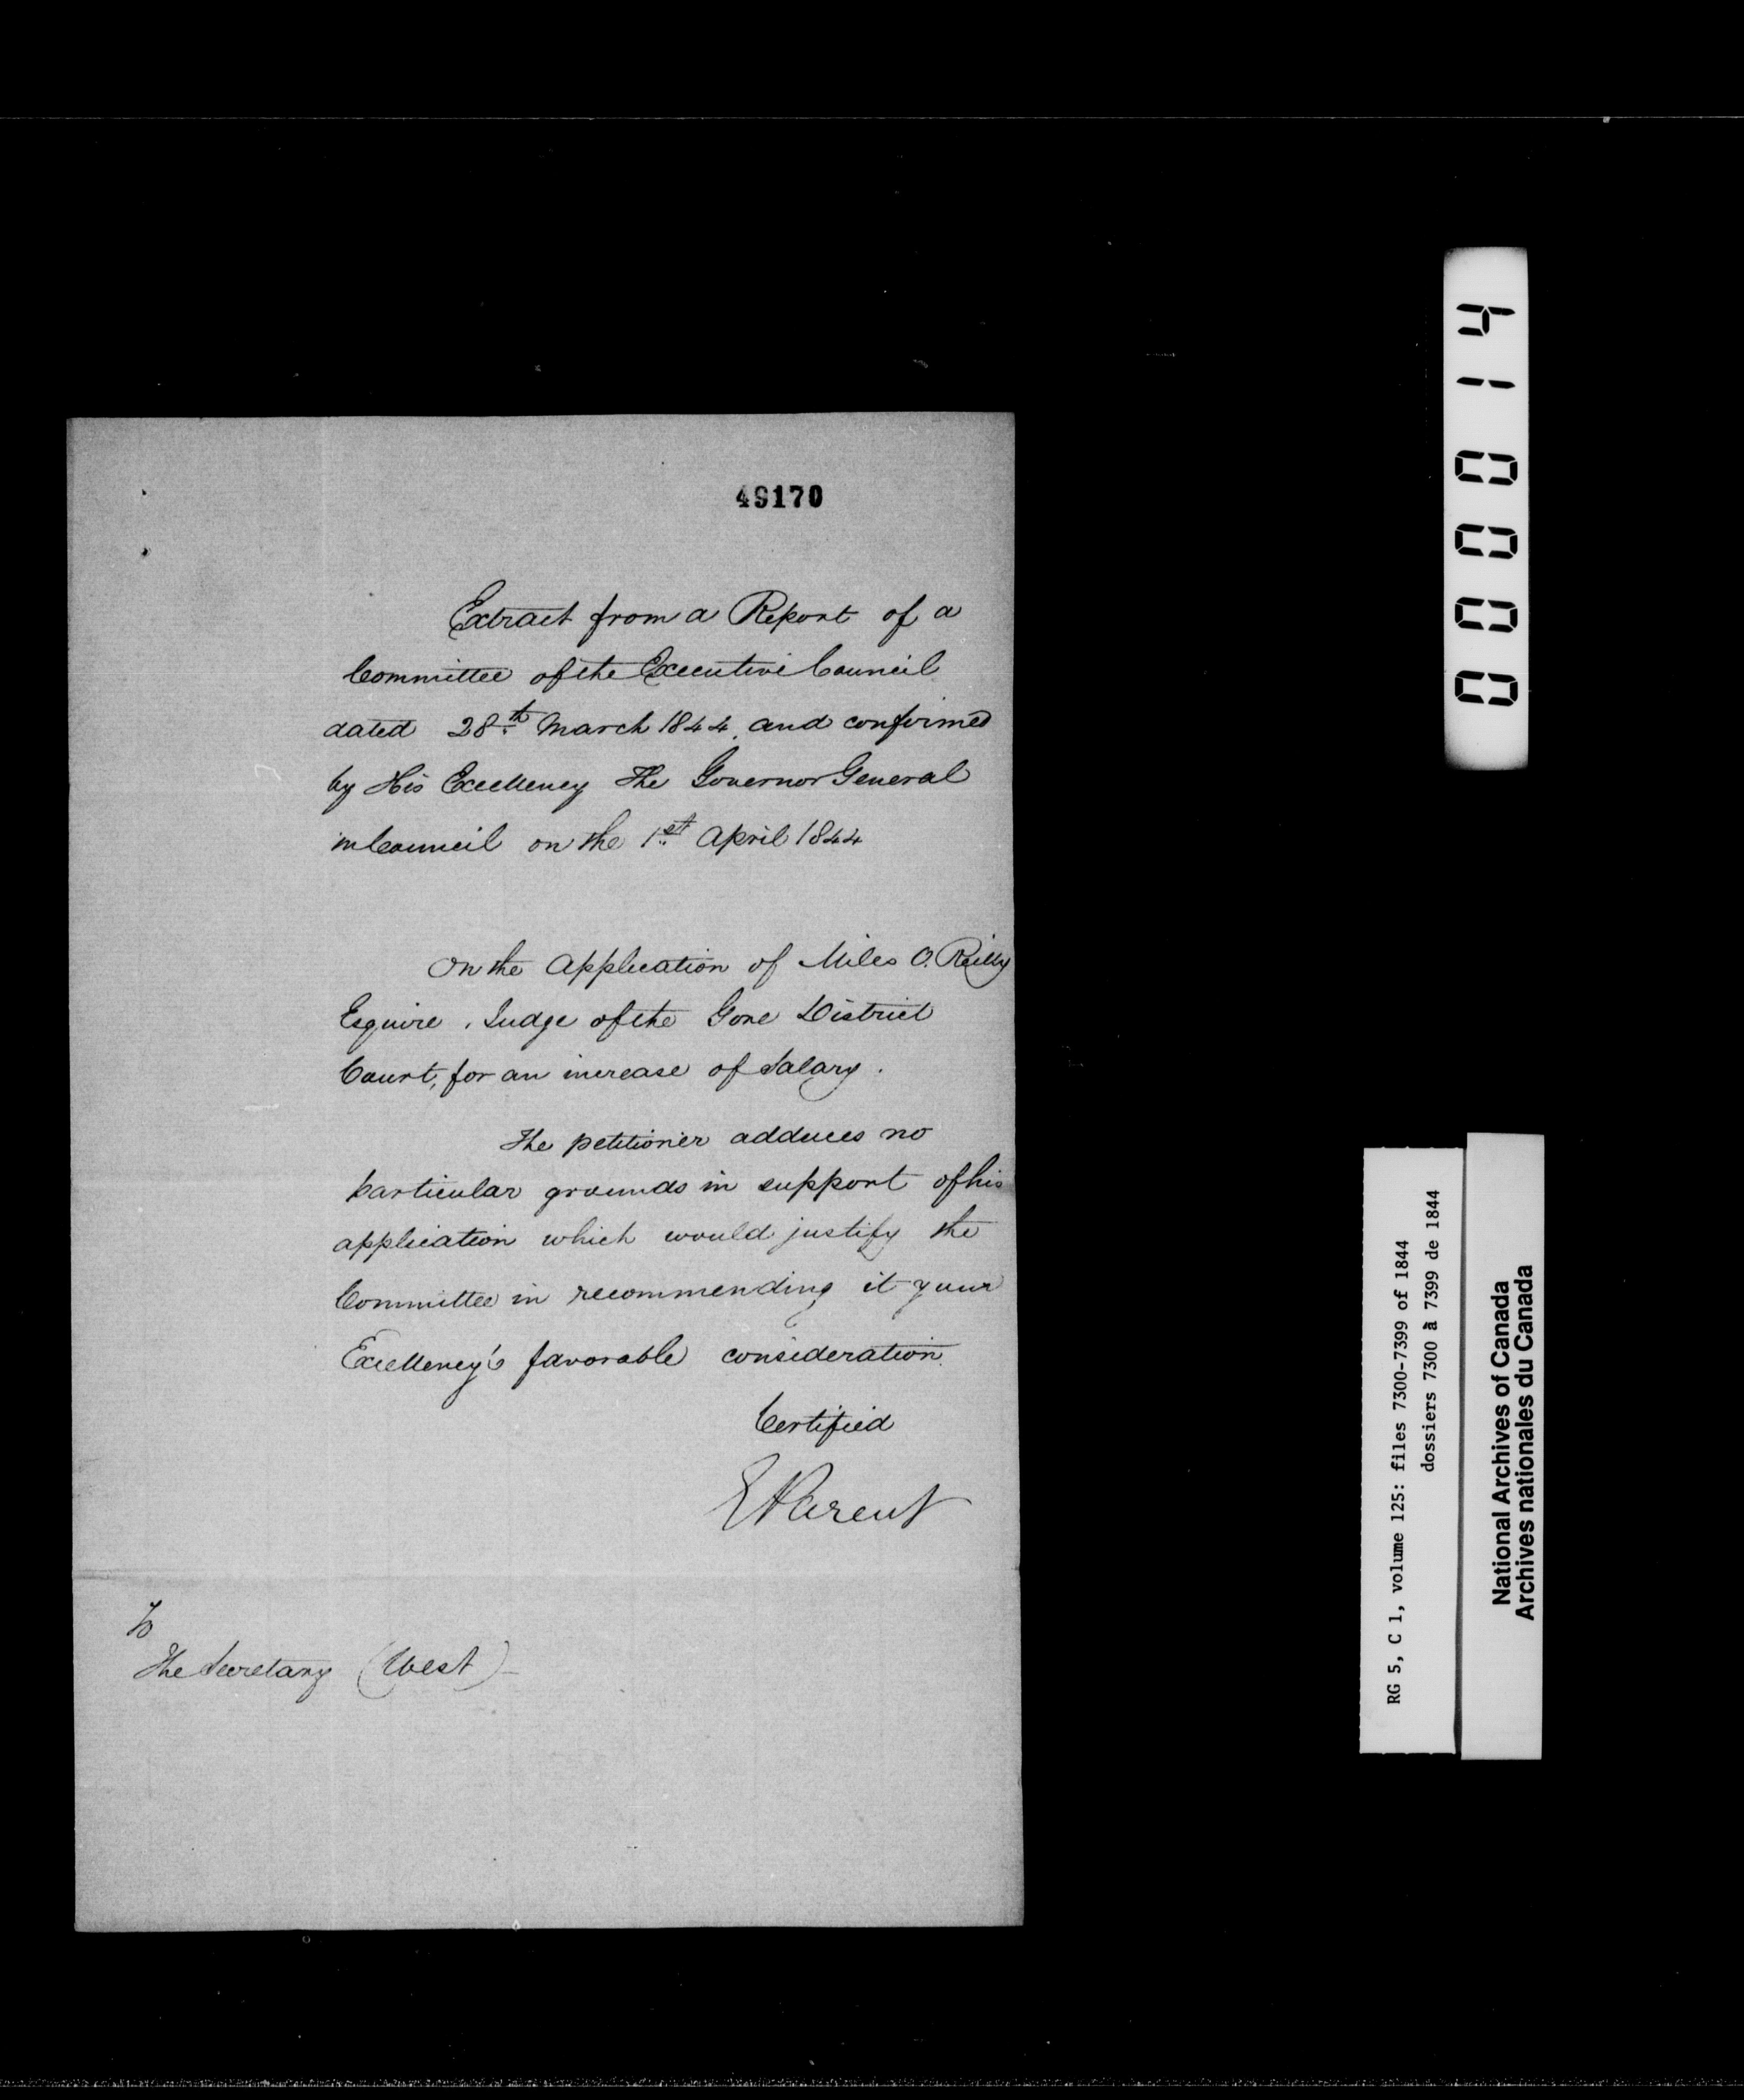 49170
Extract from a Report of a
Committee of the Executive Council
dated 28th March 1844, and confirmed
by His Excellency The Governor General
in Council on the 1st April 1844
On the Application of Miles O.Reilly
Esquire, Judge of the Gore District
Court, for an increase of Salary.
The petitioner adduces no
particular grounds in support of his
application which would justify the
Committee in recommending it your
Excellency's favorable consideration.
Certified
E Parent
To
The Secretary (West)
000014
RG 5, C 1, volume 125: files 7300-7399 of 1844
dossiers 7300 à 7399 de 1844
National Archives of Canada
Archives nationales du Canada